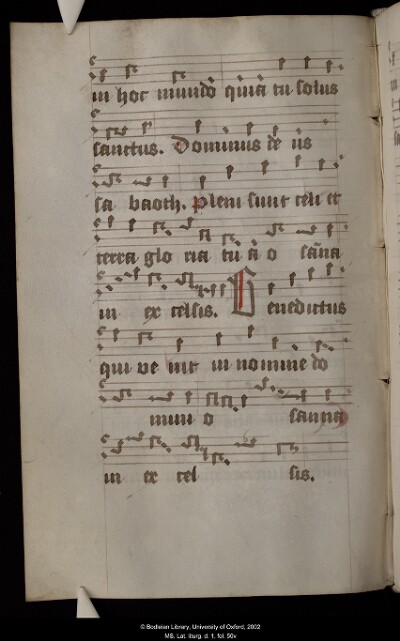 in hoc mundo quia tu solus
sanctus. Dominus de us
sa baoth. Pleni sunt celi et
terra glo ria tu a o sanna
in ex celsis. Benedictus
qui ve nit in nomine do
mini o sanna
in ex cel sis.
© Bodleian Library, University of Oxford, 2002
MS. Lat. liturg. d. 1, fol. 50v